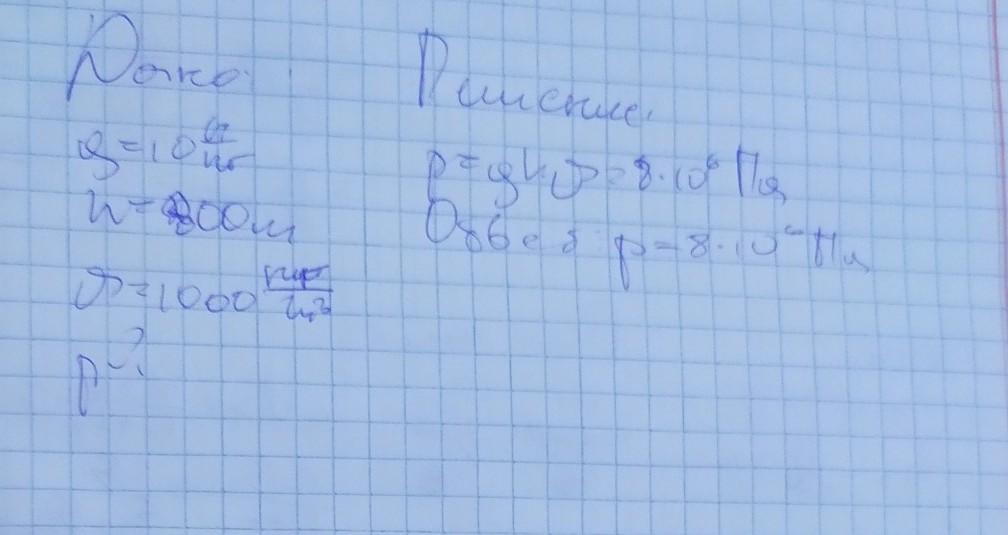 Дано:
g=10 Н/кг
h=800м
ρ=1000 кг/м³
p-?
Решение:
p=ghρ=8·10⁶ Па
Ответ: p=8·10⁶ Па